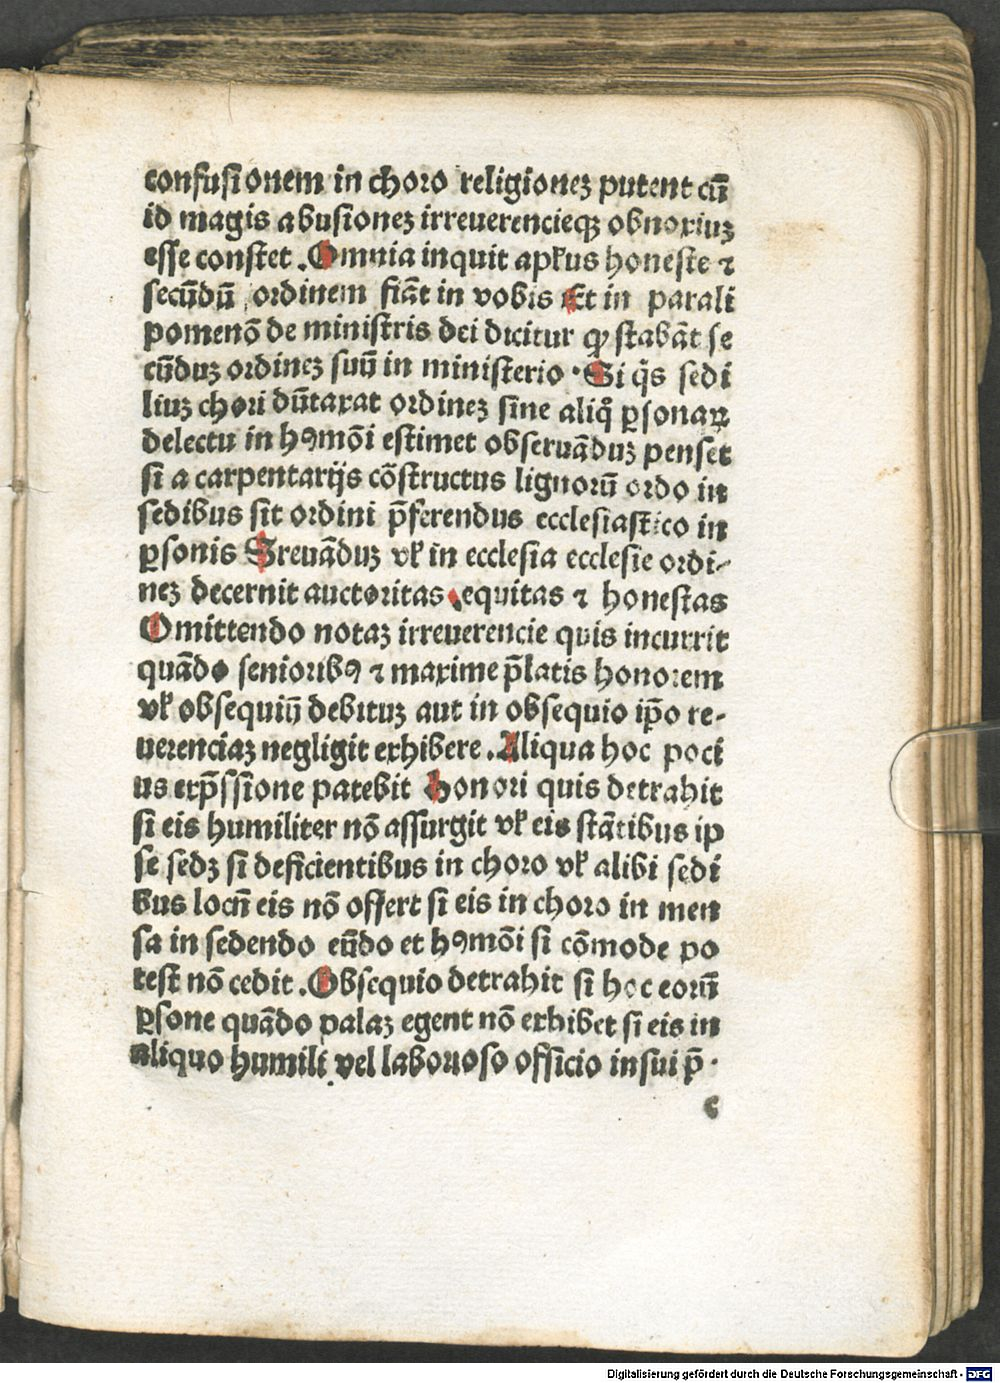 confusionem in choro religionez putent cū
id magis abusionez irreuerencieqꝫ obnoxiuz
esse constet .Omnia inquit aplꝰus honeste ⁊
secūdū ordinem fiāt in vobis Et in parali
pomenō de ministris dei dicitur ꝙ stabāt se
cūduz ordinez suū in ministerio · Si q̄s sedi
liuz chori dūtaxat ordinez sine aliqͣ ꝑsonaꝝ
delectu in hꝰmōi estimet obseruāduz penset
si a carpentarijs cōstructus lignorū ordo in
sedibus sit ordini p̄ferendus ecclesiastico in
ꝑsonis Seruāduz vl̛ in ecclesia ecclesie ordi-
nez decernit auctoritas .equitas ⁊ honestas
Omittendo notaz irreuerencie quis incurrit
quādo senioribꝰ ⁊ maxime p̄latis honorem
vl̛ obsequiū debituz aut in obsequio ip̄o re-
uerenciaz negligit exhibere .Aliqua hoc poci
us exp̄ssione patebit Honori quis detrahit
si eis humiliter nō assurgit vl̛ eis stātibus ip
se sedꝫ si deficientibus in choro vl̛ alibi sedi
bus locū eis nō offert si eis in choro in men
sa in sedendo eūdo et hꝰmōi si cōmode po
test nō cedit .Obsequio detrahit si hoc eorū
ꝑsone quādo palaz egent nō exhibet si eis in
aliquo humili vel laborioso officio in sui p̄.
c
Digitalisierung gefördert durch die Deutsche Forschungsgemeinschaft - DFG